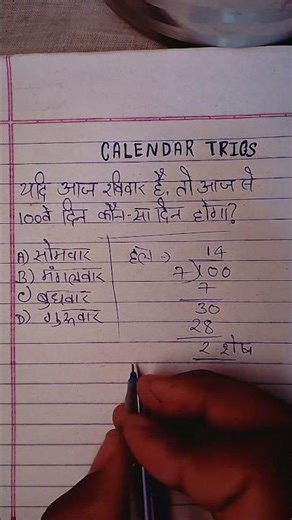 CALENDAR TRICS
यदि आज रविवार है, तो आज से
100वे दिन कौन-सा दिन होगा?
A) सोमवार
B) मंगलवार
C) बुधवार
D) गुरूवार
हल →
14
7)100
7
30
28
2 शेष